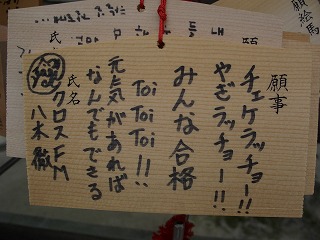 願事
チェケラッチョー!!
やぎラッチョー!!
みんな合格
Toi Toi
Toi Toi!!
元気があれば
なんでもできる
氏名
クロスFM
八木徹
願絵馬
氏